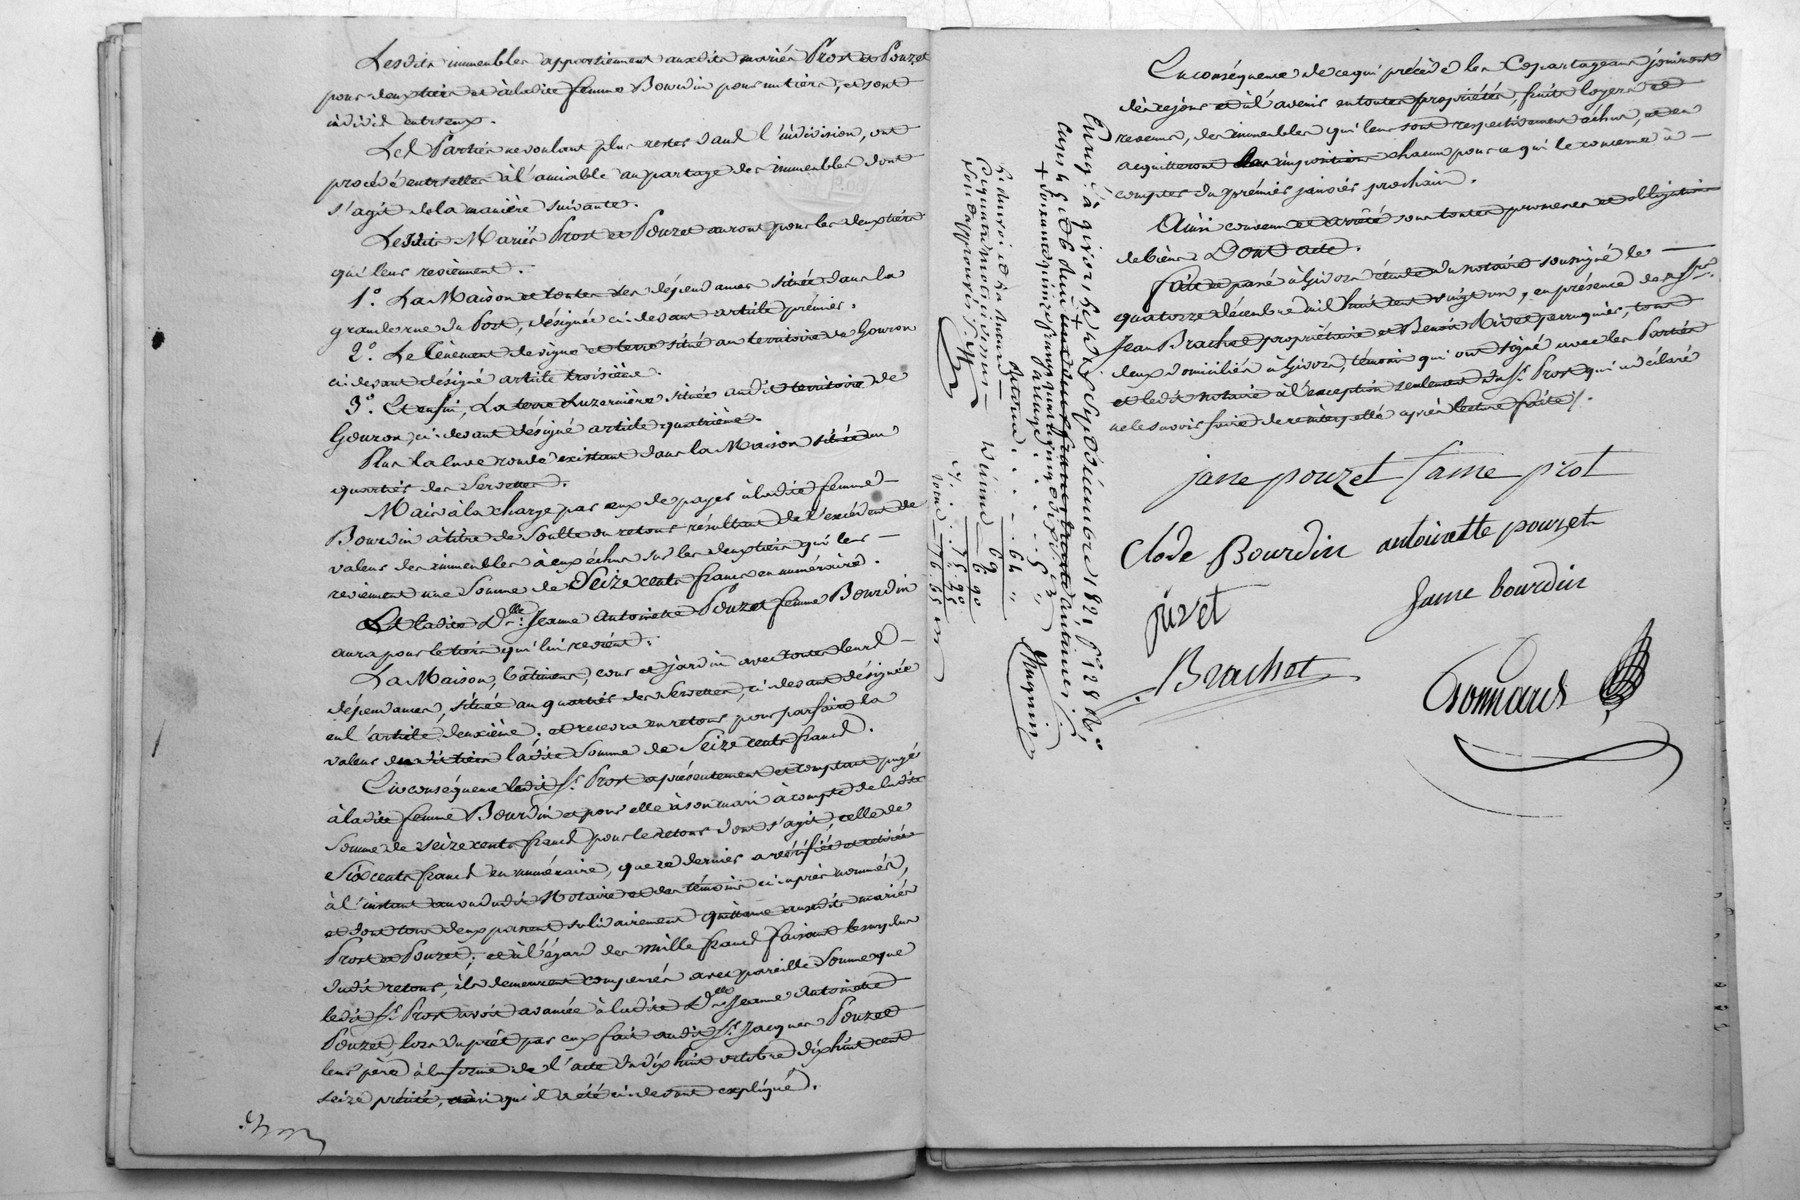 Lesdits immeubles appartiennent auxdits mariés Prost et Pouzet
pour deux tiers et à ladite femme Bourdin pour un tiers, et sont
indivis entr'eux.
Les Parties ne voulant plus rester dans l'indivision, ont
procédé entr'elles à l'amiable au partage des immeubles dont
s'agit de la manière suivante.
Lesdits Mariés Prost et Pouzet auront pour les deux tiers
qui leur reviennent.
1.° La Maison et toutes ses dépendances située dans la
grande rue du Port, désignée ci-devant article prémier.
2.° Le Ténement de vigne et terre situé au territoire de Gouzon
ci devant désigné article troisième.
3.° Et enfin, La terre Luzernière située audit territoire de
Gouzon, ci-devant désigné article quatrième.
Plus la cuve ronde existant dans la Maison située au
quartier des Servettes.
Mais à la charge par eux de payer à ladite femme
Bourdin à titre de Soulte ou retour résultant de l'excédent de
valeur des immeubles à eux échus sur les deux tiers qui leur
reviennent une Somme de Seize cents francs en numéraire.
Et ladite D.lle Jeanne Antoinette Pouzet femme Bourdin
aura pour le tiers qui lui revient.
La Maison, bâtiment, cour et jardin avec toutes leurs
dépendances, située au quartier des Servettes, ci devant désignée
en l'article deuxième; et recevra en retour pour parfaire la
valeur dudit tiers ladite Somme de Seize cents francs.
En conséquence ledit S.r Prost a présentement et comptant payé
à ladite femme Bourdin et pour elle à son mari à compte de ladite
Somme de seize cents francs pour le retour dont s'agit, celle de
Six cents francs en numéraire, que ce dernier a vérifiée et retirée
à l'instant au vu dudit Notaire et des témoins ci après nommés,
et dont tous deux passent solidairement quittance auxdits mariés
Prost et Pouzet; et à l'égard des mille francs faisant le surplus
dudit retour, ils demeurent compensés avec pareille Somme que
ledit S.r Prost avoit avancée à ladite D.lle Jeanne Antoinette
Pouzet, lors du prêt par eux fait audit S.r Jacques Pouzet
leur père à la forme de l'acte du dix huit octobre dix huit cent
seize précité, ainsi qu'il a été ci-devant expliqué.
En conséquence de ce qui précède les Copartageans jouiront
dès ce jour et à l'avenir en toutes propriétés, fruits loyers et
revenus, des immeubles qui leur sont respectivement échus, et en
acquitteront les impositions chacun pour ce qui le concerne à
compter du prémier janvier prochain.
Ainsi convenu et arrêté sous toutes promesses et obligation
de biens. Dont acte.
Fait et passé à Givors étude du notaire soussigné le
quatorze décembre mil huit cent vingt un, en présence de S.rs
Jean Brachet propriétaire et Benoit Rivet perruquier, tous
deux domiciliés à Givors, témoins qui ont signé avec les Parties
et ledit notaire à l'exception seulement du S.r Prost qui a déclaré
ne le savoir faire de ce interpellé après lecture faite /.
jane pouzet fame prot
Clode Bourdin antoinette pouzet
fame bourdin
Brachet
Enreg. à givors le Décembre 1821, f.° 128